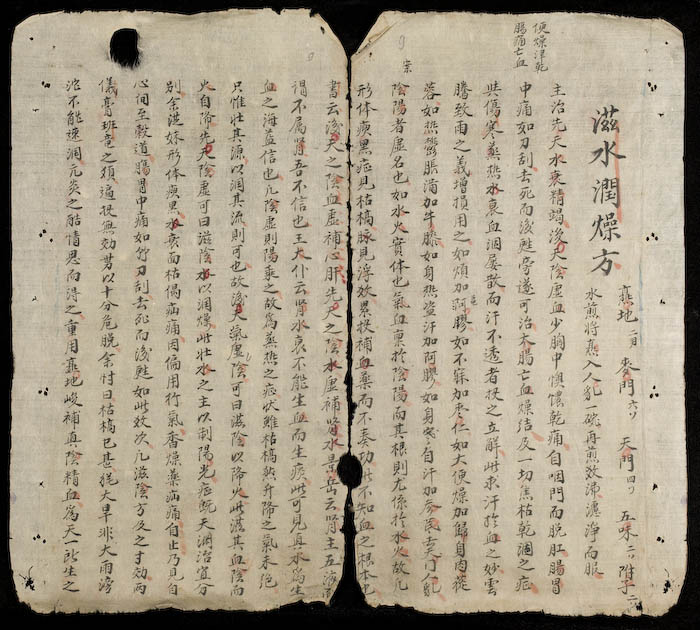 便燥津乾
腸痛亡血
滋水潤燥方
熟地二両 麥門六𠔃 天門四𠔃 五味二𠔃 附子二
水煎將熟入人乳一碗再煎数沸濾淨而服
主治先天水衰精竭後天陰虚血少胸中懊憹乾痛自咽門而脱肛腸胃
中痛如刀刮去死而後甦旁遂可治末腸亡血燥结及一切焦枯乾涸之症
與傷寒蒸熱水衰血涸屡散而汗不透者投之立解此求汗於血之妙雲
騰致雨之義增損用之如煩加阿膠如不寐加枣仁如大便燥加歸身肉蓯
蓉如熱鬱脹満加牛膝如身熱盗汗加阿膠如身安自汗加
案
陰陽者虚名也如水火實体也氣血禀於陰陽而其根則尤係於水火故凡
形体瘐黑症見枯槁脉見濇效累投補血藥而不奏功此不知血之根本也
書云後天之陰血虚補心肝先天之陰水虚補腎水景岳云腎主五液而
謂不属腎吾不信也王太仆云腎水衰不能生血而生痰此可見真水爲生
血之海益信也凡陰虚則陽乘之故爲蒸熱之症状雖枯槁熱升降之氣未绝
只惟壮其源以涸其流則可也故後天氣虚陰可曰滋陰以降火此滋其血陰而
火自降先天陰虚可曰滋陰水以潤燥此壮水之主以制陽光症既天淵治宜分
别余洪妹形体瘐黑水衰而枯偈疝痛因偏用行氣香燥藥疝痛自止乃見自
心间至穀道腸胃中痛如竹刀刮去死而後甦如此效次凡滋陰方及之才效两
儀膏班竜之類遍投無効势以十分危脱余忖曰枯槁已甚猶大旱非大雨滂
沱不能速润亢炎之酷情思而得之重用熟地峻補真陰精血爲天一所生之